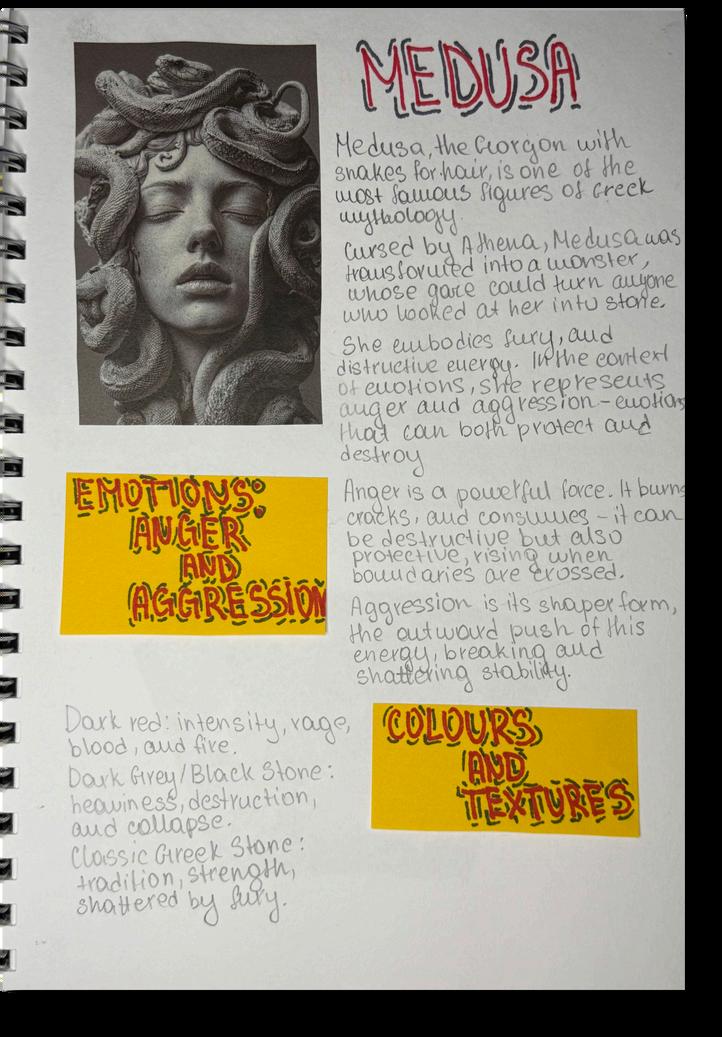 MEDUSA
Medusa, the Gorgon with
snakes for hair, is one of the
most famous figures of Greek
mythology.
Cursed by Athena, Medusa was
transformed into a monster,
whose gaze could turn anyone
who looked at her into stone.
She embodies fury, and
distructive energy. In the context
of emotions, she represents
anger and aggression - emotions
that can both protect and
destroy
EMOTIONS:
ANGER
AND
AGGRESSION
Anger is a powerful force. It burns
cracks, and consumes - it can
be destructive but also
protective, rising when
boundaries are crossed.
Aggression is its shaper form,
the outward push of this
energy, breaking and
shattering stability.
Dark red: intensity, rage,
blood, and fire.
Dark Grey/Black Stone:
heaviness, destruction,
and collapse.
Classic Greek Stone:
tradition, strength,
shattered by fury.
COLOURS
AND
TEXTURES